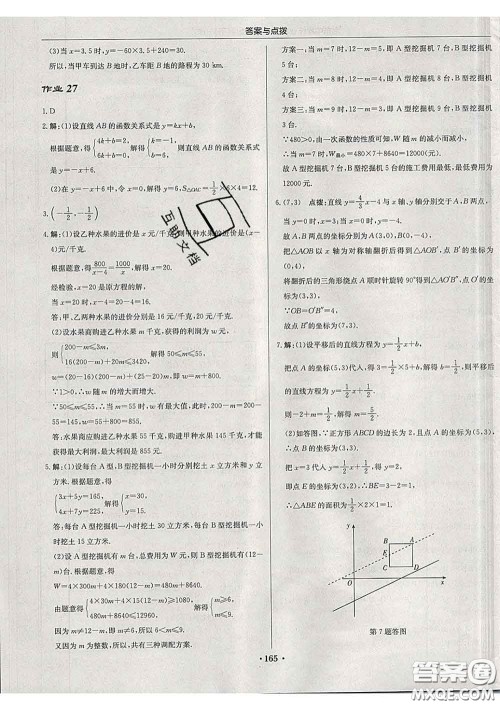 答案与点拨
(3)当 x=3.5 时,y=-60×3.5+240=30.
所以,当甲车到达 B 地时,乙车距 B 地的路程为 30 km.
作业 27
1. D
2. 解:(1)设直线 AB 的函数关系式是 y=kx+b,
根据题意,得{4k+b=2, 6k+b=0, 解得{k=-1, b=6. 则直线 AB 的函数关系式是 y=-x+6.
(2)在 y=-x+6 中,令 x=0,解得 y=6,S△OAC=1/2×6×4=12.
3. (-1/2,-1/2)
4. 解:(1)设乙种水果的进价是 x 元/千克,则甲种水果的进价是(x-4)元/千克.
根据题意,得800/(x-4)=1000/x,解得 x=20.
经检验,x=20 是原方程的解.
当 x=20 时,x-4=20-4=16.
答:甲、乙两种水果的进价分别是 16 元/千克,20 元/千克.
(2)设水果商购进乙种水果 m 千克,获得的利润为 w 元.
则{200-m≤3m, 16(200-m)+20m≤3420, 解得 50≤m≤55,
w=(20-16)(200-m)+(25-20)m=m+800,
∵1>0,∴w 随 m 的增大而增大.
∵50≤m≤55,∴当 m=55 时,w 有最大值,此时,200-m=200-55=145,w=55+800=855.
答:水果商购进甲种水果 145 千克,乙种水果 55 千克,才能获得最大利润,最大利润是 855 元.
5. 解:(1)设每台 A 型、B 型挖掘机一小时分别挖土 x 立方米和 y 立方米.
根据题意,得
{3x+5y=165, 4x+7y=225, 解得{x=30, y=15.
答:每台 A 型挖掘机一小时挖土 30 立方米,每台 B 型挖掘机一小时挖土 15 立方米.
(2)设 A 型挖掘机有 m 台,总费用为 W 元,则 B 型挖掘机有(12-m)台. 根据题意,得
W=4×300m+4×180(12-m)=480m+8640,
由题意得{4×30m+4×15(12-m)≥1080, 4×300m+4×180(12-m)≤12960, 解得{m≥6, m≤9.
因为 m≠12-m,解得 m≠6,所以 7≤m≤9.
又因为 m 为正整数,所以共有三种调配方案.
方案一:当 m=7 时,12-m=5,即 A 型挖掘机 7 台,B 型挖掘机 5 台.
方案二:当 m=8 时,12-m=4,即 A 型挖掘机 8 台,B 型挖掘机 4 台.
方案三:当 m=9 时,12-m=3,即 A 型挖掘机 9 台,B 型挖掘机 3 台.
∵480>0,由一次函数的性质可知,W 随 m 的减小而减小,
∴当 m=7 时,W最小=480×7+8640=12000(元).
故 A 型挖掘机 7 台,B 型挖掘机 5 台的施工费用最低,最低费用为 12000 元.
6. (7,3) 点拨:直线 y=4/3 x-4 与 x 轴,y 轴分别交于 A,B 两点,
故点 A,B 的坐标分别为(3,0),(0,-4),
把△AOB 以 x 轴为对称轴翻折后得到△AOB′的坐标为(0,4),
将翻折后的三角形绕点 A 顺时针旋转 90°得到△AO′B″,点 O′的坐标为(3,3),
故点 B″的坐标为(7,3).
7. 解:(1)设平移后的直线方程为 y=1/2x+b,
把点 A 的坐标(5,3)代入,得 3=1/2×5+b,解得 b=1/2,则平移后的直线方程为 y=1/2x+1/2.
则-2+m=1/2,解得 m=5/2.
(2)如答图.∵正方形 ABCD 的边长为 2,且点 A 的坐标为(5,3),
∴B 点坐标为(3,3).
把 x=3 代入 y=1/2x+1/2,得 y=1/2×3+1/2=2,即 E 点坐标为(3,2).∴BE=3-2=1.
∴△ABE 的面积为1/2×2×1=1.
y
B A
E
C D
O x
第 7 题答图
·165·
互助文档
答案圈
MXQE.COM